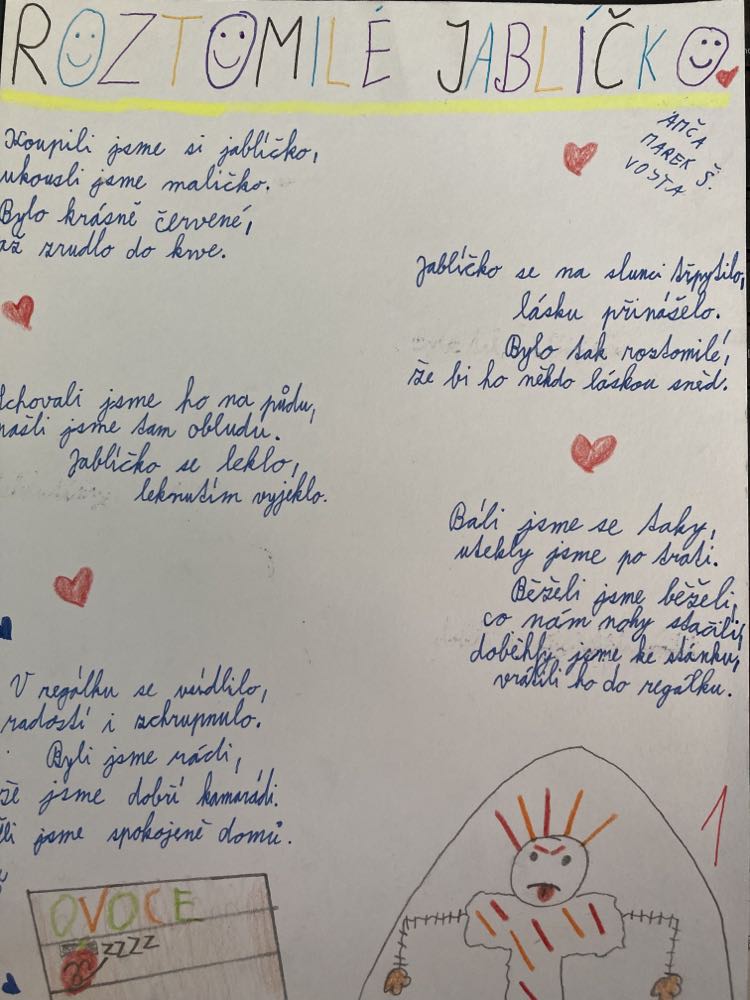 ROZTOMILÉ JABLÍČKO
AMČA
MAREK Š.
VOJTA
Koupili jsme si jablíčko,
ukousli jsme maličko.
Bylo krásně červené,
až zrudlo do krve.
Jablíčko se na slunci třpytilo,
lásku přinášelo.
Bylo tak roztomilé,
že bi ho někdo láskou sněd.
Schovali jsme ho na půdu,
našli jsme tam obludu.
Jablíčko se leklo,
leknutím vyjeklo.
Báli jsme se taky,
utekly jsme po trati.
Běželi jsme běželi,
co nám nohy stačili,
doběhly jsme ke stánku,
vrátili ho do regálku.
V regálku se usídlilo,
radostí i zchrupnulo.
Byli jsme rádi,
že jsme dobří kamarádi.
šli jsme spokojeně domů.
1
OVOCE
ZZZZ